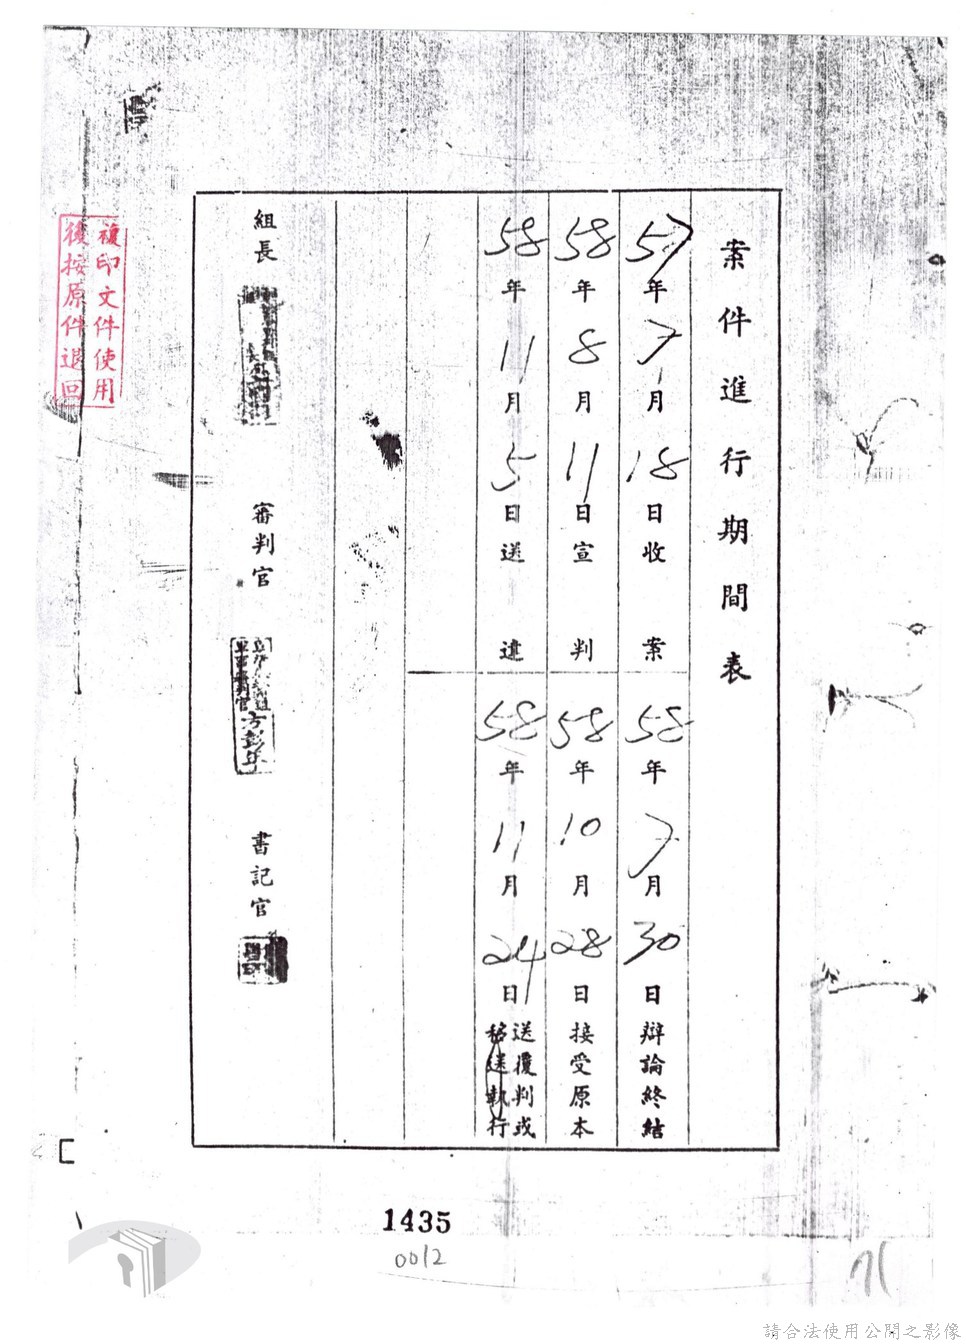 案件進行期間表
57年7月18日收案
58年7月30日辯論終結
58年8月11日宣判
58年10月28日接受原本
58年11月5日送達
58年11月24日送覆判或
移送執行
組長
審判官
方彭年
書記官
複印文件使用
後按原件退回
1435
0012
請合法使用公開之影像